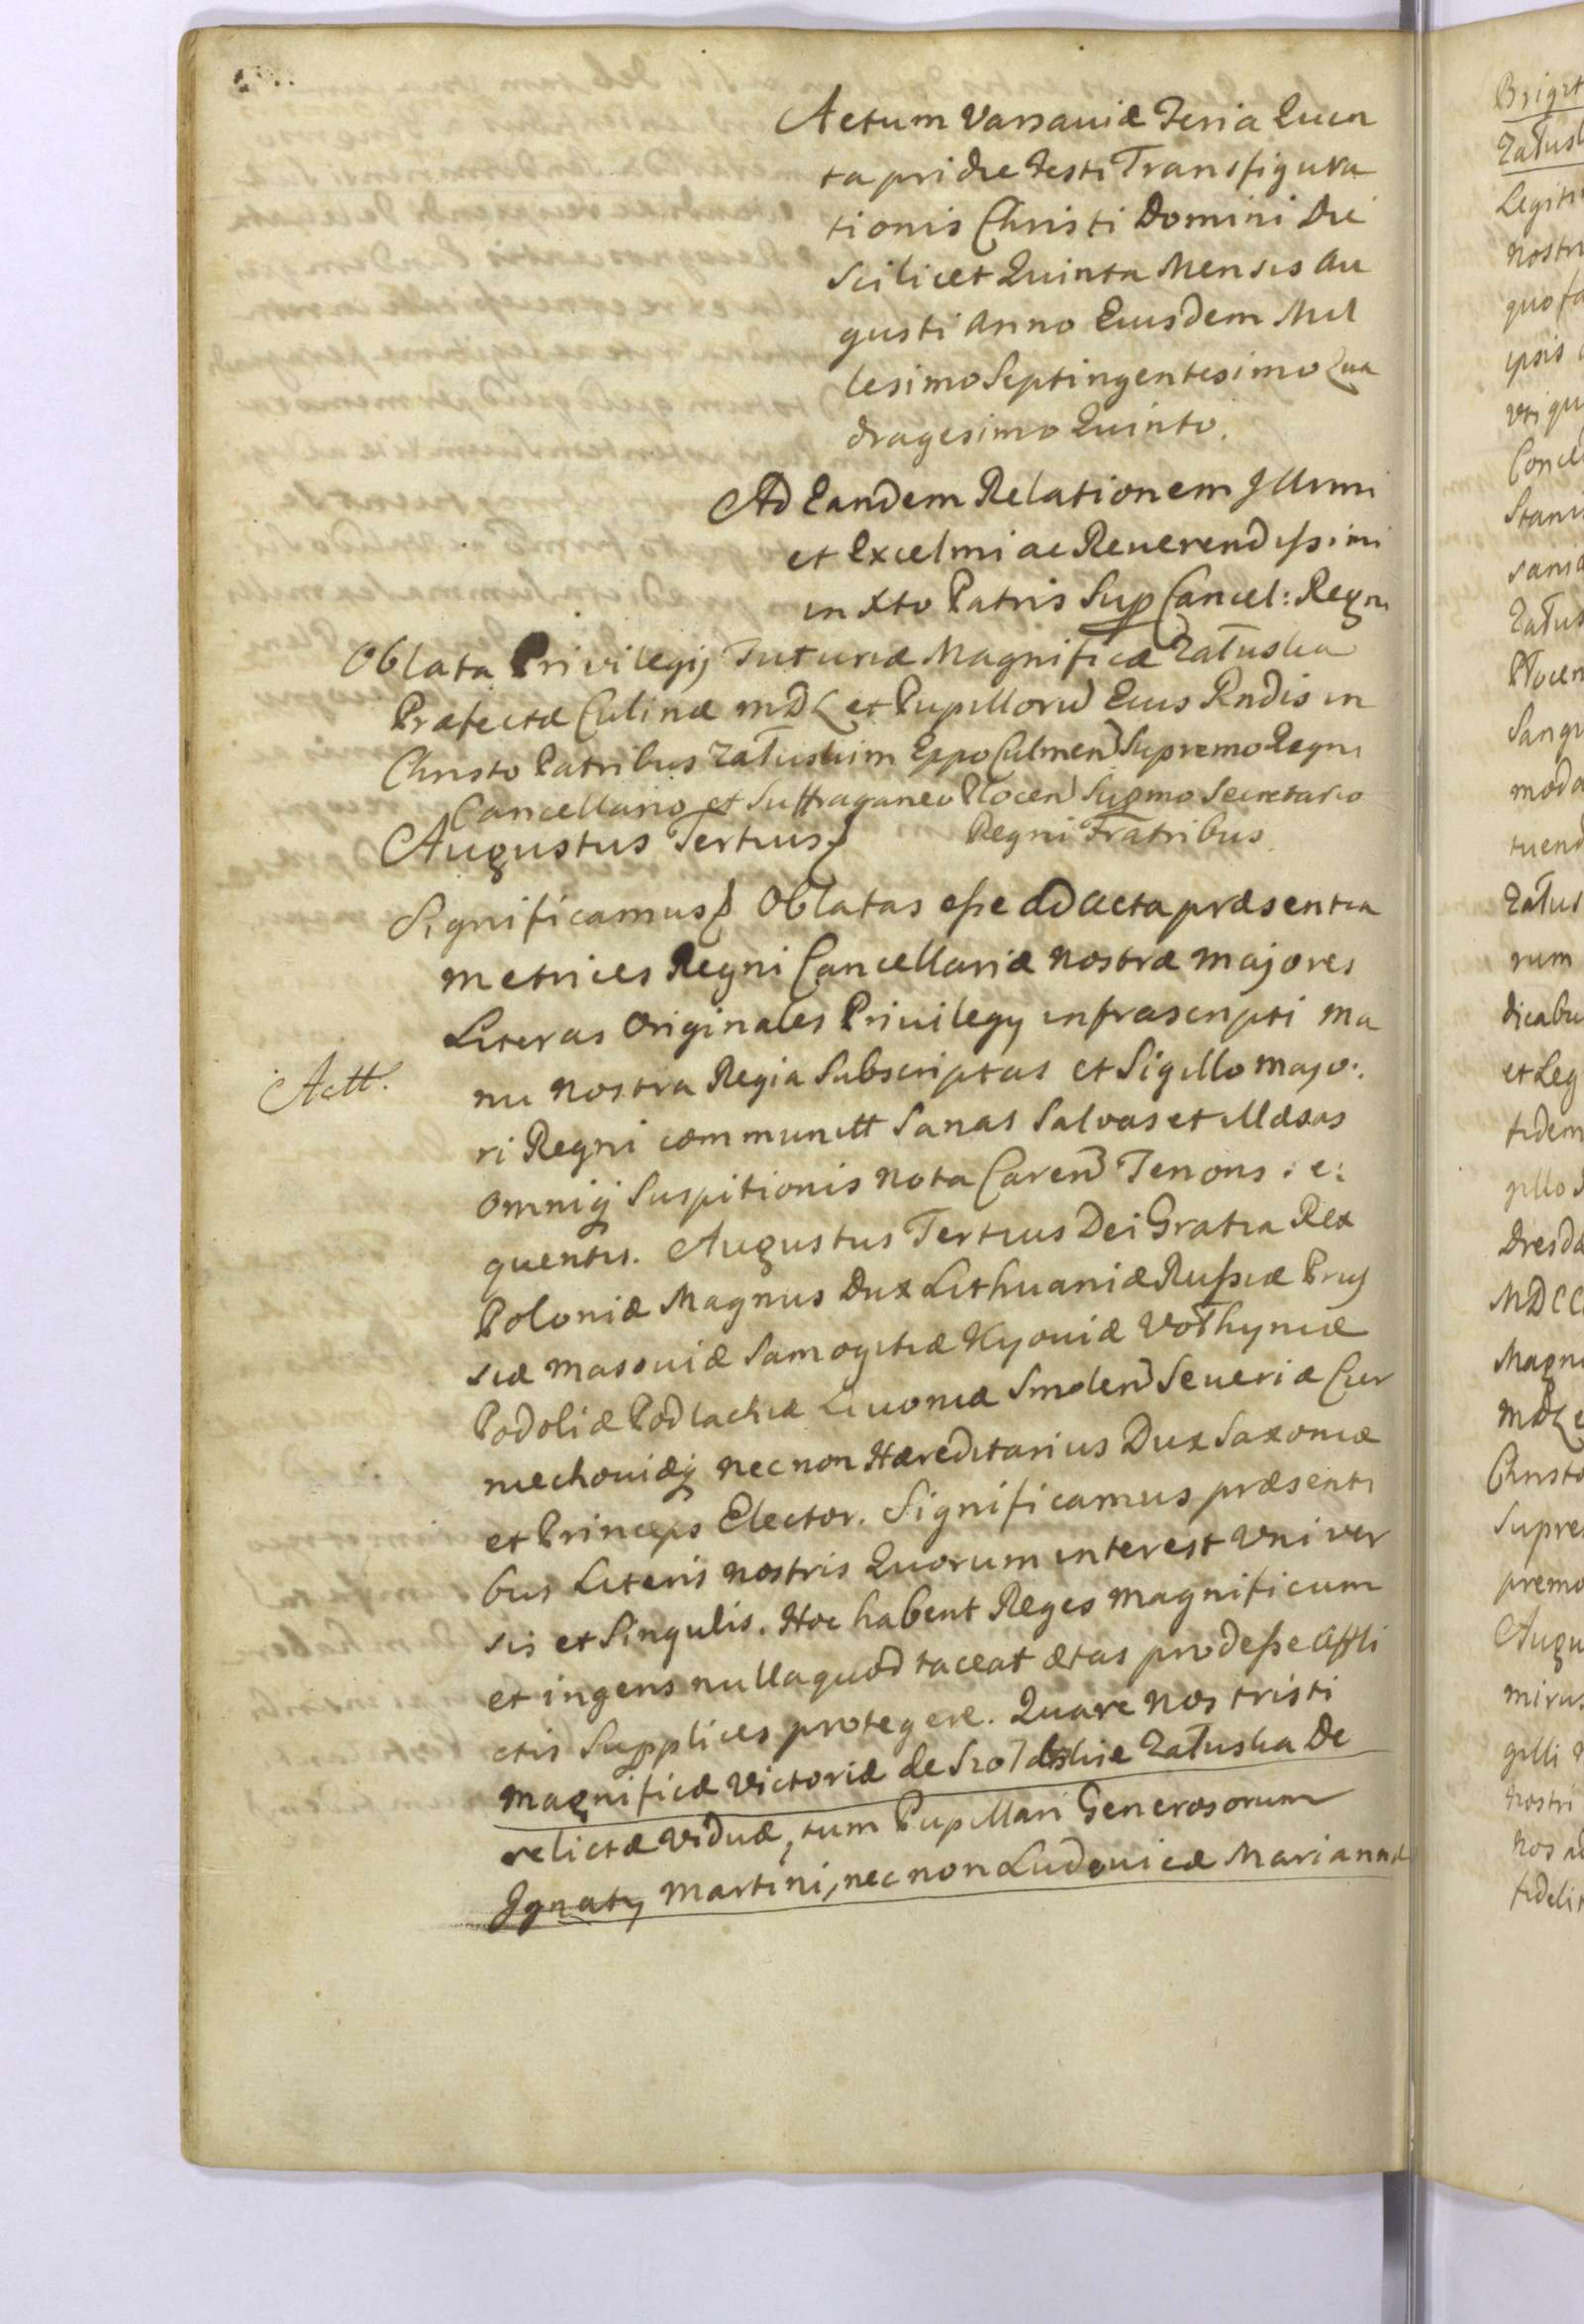 Actum Varsaviæ Feria Quin
ta pridie Festi Transfigura
tionis Christi Domini Die
scilicet Quinta Mensis Au
gusti Anno Eiusdem Mil
lesimo Septingentesimo Qua
dragesimo Quinto.
Ad Eandem Relationem Illmi
et Excelmi ac Reverendissimi
in Xto Patris Sup Cancel: Regni
Oblata Privilegij Tutoriæ Magnificæ Załuska
Præfectæ Culinæ MDL et Pupillorū Eius Rndis in
Christo Patribus Załuskim Eppo Culmen Supremo Regni
Cancellario et Suffraganeo Plocen Supmo Secretario
Augustus Tertius Regni Fratribus.
Significamus Oblatas esse ad Acta præsentia
Metrices Regni Cancellariæ nostræ majores
Literas Originales Privilegij infrascripti ma
Actt.
nu nostra Regia Subscriptas et Sigillo majo:
ri Regni communitt Sanas Salvas et illæsas
omniq suspitionis nota Caren Tenoris se:
quentis. Augustus Tertius Dei Gratia Rex
Poloniæ Magnus Dux Lithuaniæ Russiæ Prus
siæ Masoviæ Samogitiæ Kyoviæ Vołhyniæ
Podoliæ Podlachiæ Livoniæ Smolen Severiæ Czer
niechoviæq necnon Hæreditarius Dux Saxoniæ
et Princeps Elector. Significamus præsenti
bus Literis nostris Quorum interest Univer
sis et Singulis. Hoc habent Reges magnificum
et ingens nulla quod taceat ætas prodesse Affli
ctis Supplices protegere. Quare nos tristi
Magnificæ Victoriæ de Szołdrskie Załuska De
relictæ Viduæ, tum Pupillari Generosorum
Ignatij Martini, necnon Ludovicæ Mariannæ
Załus
Legiti
nostri
quo fa
ipsis
Stani
Załus
Plocen
Sangv
moda
tuend
Załus
rum
dicabu
et Leg
fidem
gillo
Dresdæ
MDCC
Magni
Christo
Supre
premo
Augu
mirus
gilli
nostri
nos ad
fideli